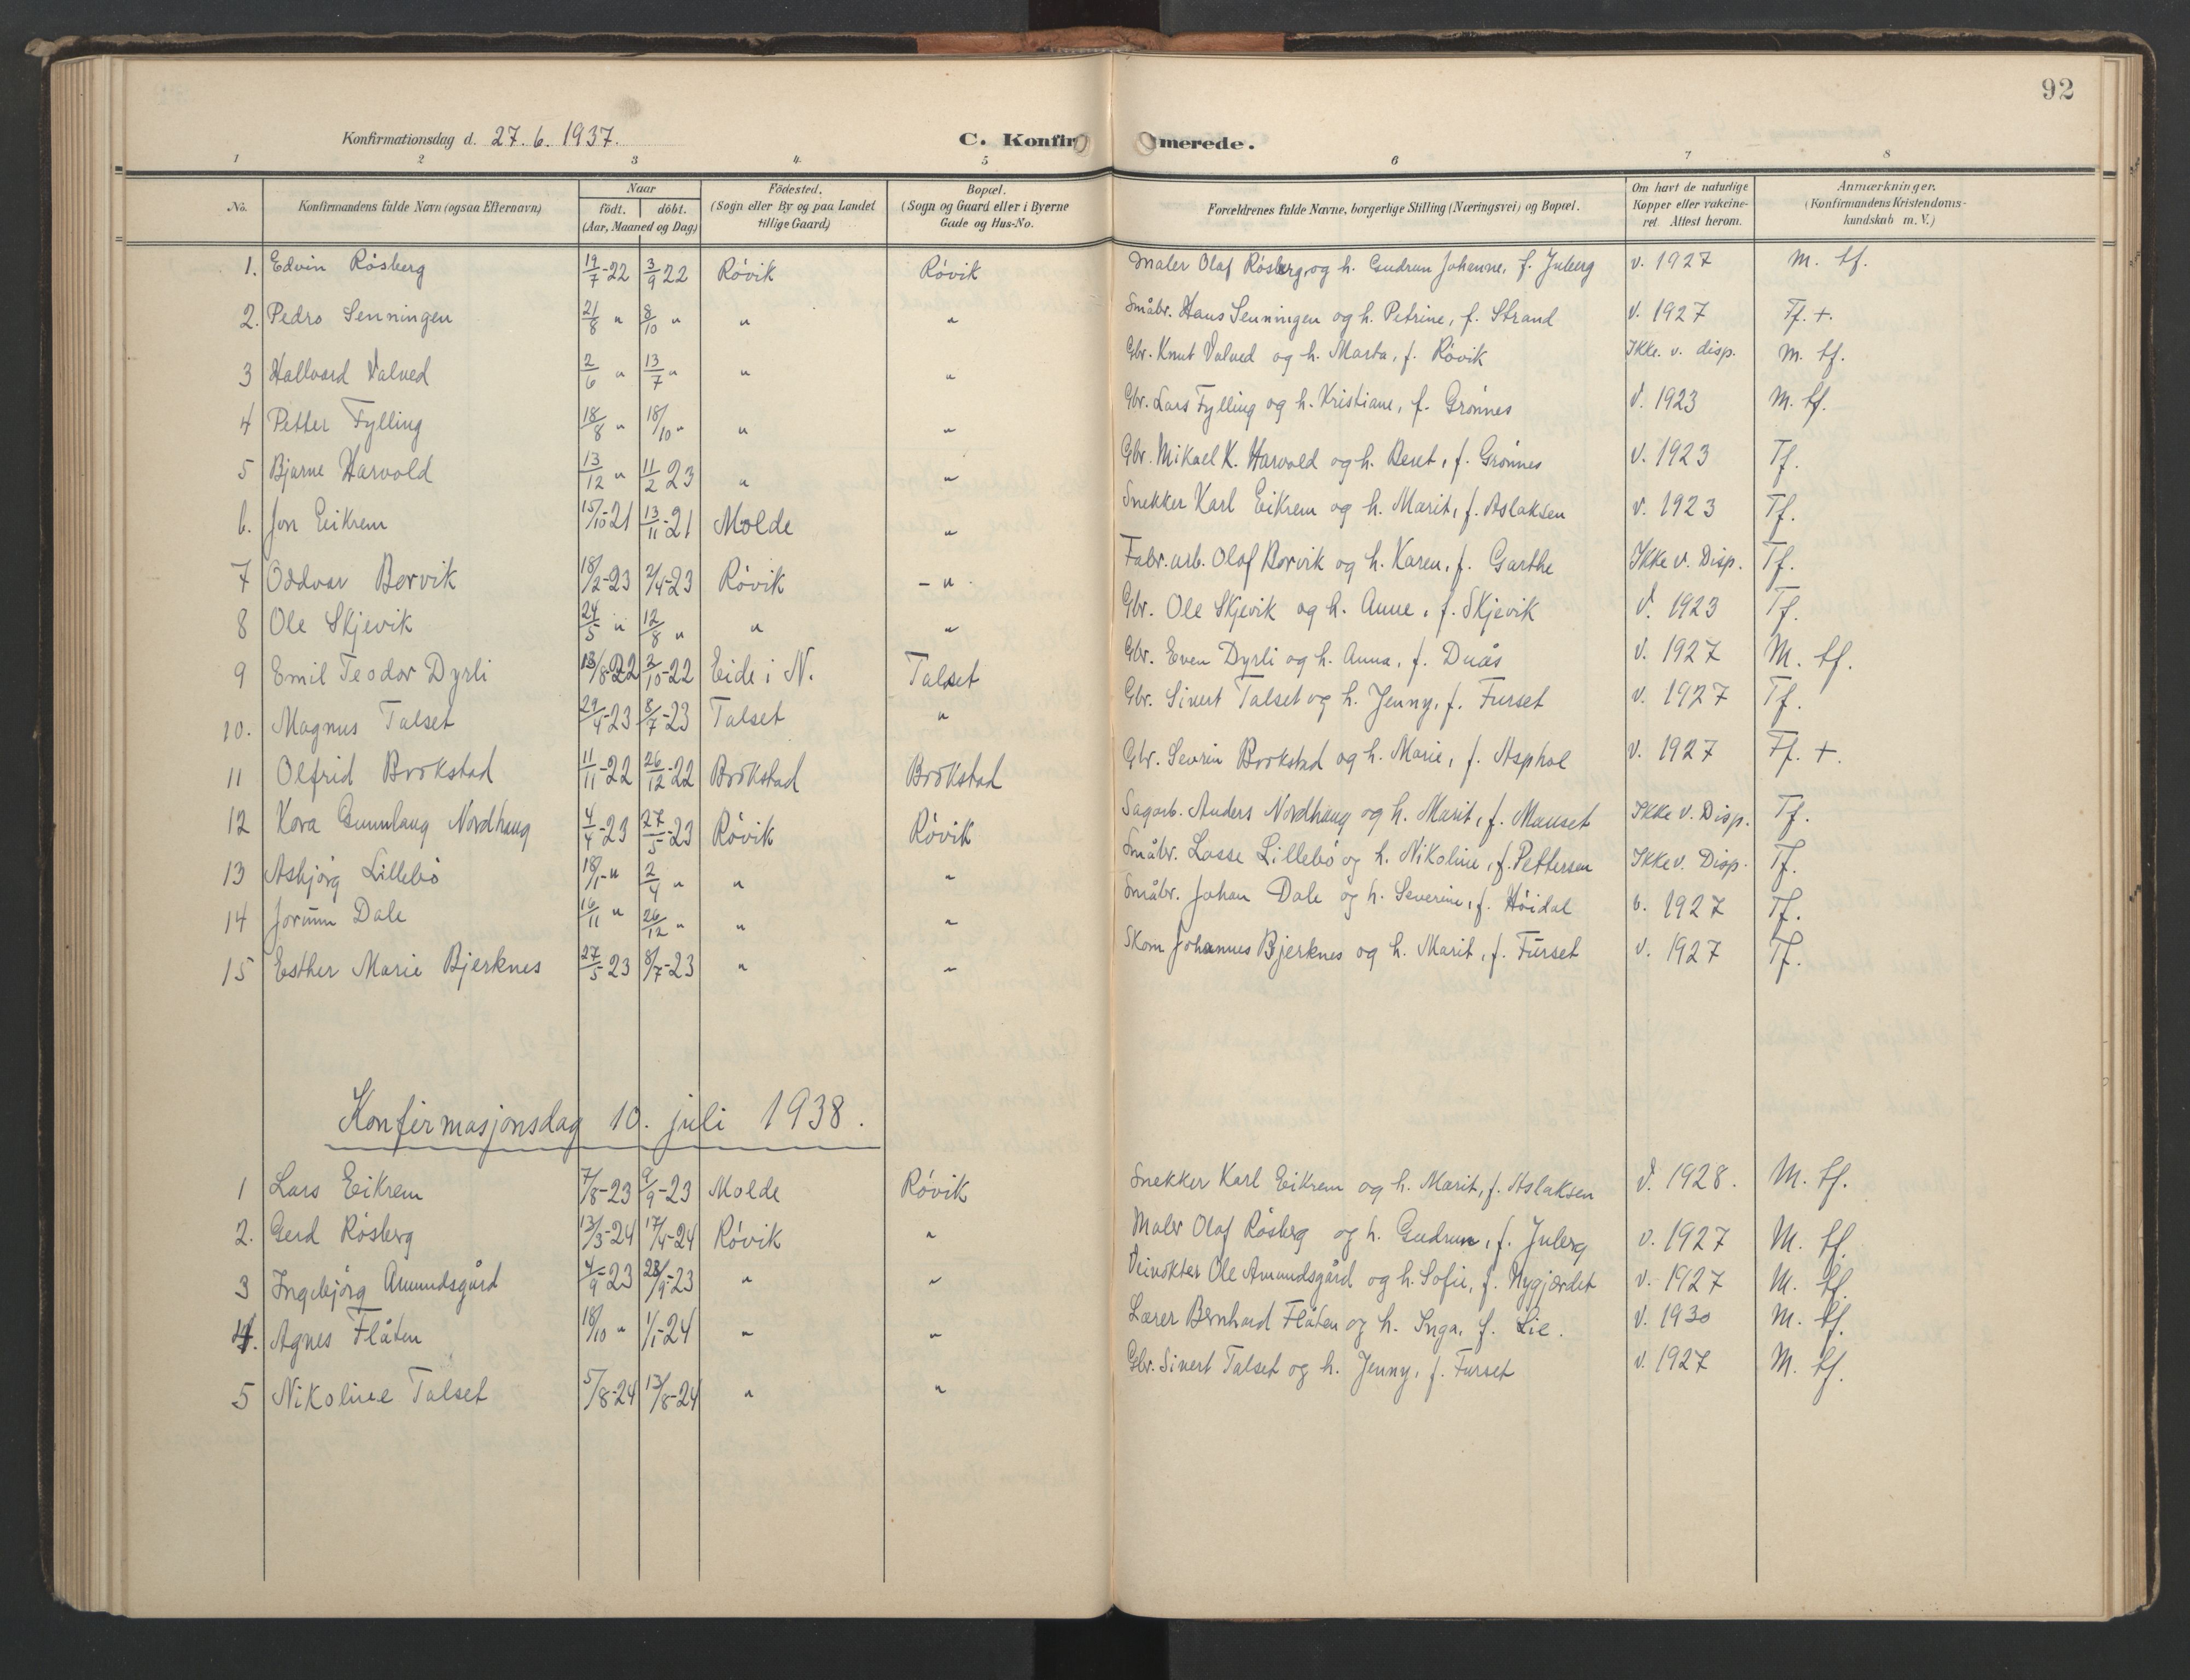 92
Konfirmationsdag d. 27. 6. 1937. C. Konfirmerede.
1 2 3 4 5 6 7 8
No. Konfirmandens fulde Navn (ogsaa Efternavn) Naar födt. döbt. (Aar, Maaned og Dag) Födested. (Sogn eller By og paa Landet tillige Gaard) Bopæl. (Sogn og Gaard eller i Byerne Gade og Hus-No. Forældrenes fulde Navne, borgerlige Stilling (Næringsvei) og Bopæl. Om havt de naturlige Kopper eller vakcineret Attest herom. Anmærkninger. (Konfirmandens Kristendomskundskab m. V.)
1. Edvin Rösberg 19/7-22 3/9 22 Rövik Rövik Maler Olaf Rösberg og h. Gudrun Johanne, f. Julerg v. 1927 M. tf.
2. Pedro Senningen 21/8 " 8/10 " " " Småbr. Hans Senningen og h. Petrine, f. Strand v. 1927 Tf. +.
3 Hallvard Valved 2/6 " 13/7 " " " Gbr. Knut Valved og h. Marta, f. Rövik Ikke. v. disp. M. tf.
4 Petter Fylling 18/8 " 18/10 " " " Gbr. Lars Fylling og h. Kristiane, f. Grönnes V. 1923 M. tf.
5 Bjarne Harvold 13/12 " 11/2 23 " " Gbr. Mikael K. Harvold og h. Beret, f. Grönnes v. 1923 Tf.
6. Jon Eikrem 15/10-21 13/11-21 Molde " Snekker Karl Eikrem og h. Marit, f. Aslaksen v. 1923 Tf.
7 Oddvar Bervik 18/2-23 2/4-23 Rövik - " - Fabr. arb. Olaf Bervik og h. Karen, f. Garthe Ikke v. Disp. Tf.
8 Ole Skjevik 24/5 " 12/8 " " " Gbr. Ole Skjevik og h. Anne, f. Skjevik V. 1923 Tf.
9 Emil Teodor Dyrli 13/8-22 2/10-22 Eide i N. Talset Gbr. Even Dyrli og h. Anna, f. Duås v. 1927 M. tf.
10. Magnus Talset 29/4-23 8/7-23 Talset " Gbr. Sivert Talset og h. Jenny, f. Furset v. 1927 Tf.
11 Olfrid Brökstad 11/11-22 26/12-22 Brökstad Brökstad Gbr. Sevrin Brökstad og h. Marie, f. Asphol v. 1927 Tf. +.
12 Kora Gunnlaug Nordhaug 4/4-23 27/5-23 Rövik Rövik Sagarb. Anders Nordhaug og h. Marit, f. Mauset Ikke v. Disp. Tf.
13 Asbjörg Lillebö 18/1-" 2/4 " " " Småbr. Lasse Lillebö og h. Nikoline, f. Pettersen Ikke v. Disp. Tf.
14 Jorunn Dale 16/11 " 26/12 " " " Småbr. Johan Dale og h. Severine, f. Höidal v. 1927 Tf.
15 Esther Marie Bjerknes 27/5-23 8/7-23 " " Skom Johannes Bjerknes og h. Marit, f. Furset v. 1927 Tf.
Konfirmasjonsdag 10. juli 1938.
1 Lars Eikrem 7/8-23 9/9-23 Molde Rövik Snekker Karl Eikrem og h. Marit, f. Aslaksen V. 1928. M. tf.
2. Gerd Rösberg 13/3-24 17/4-24 Rövik " Maler Olaf Rösberg og h. Gudrun, f. Julerg v. 1927 M. tf.
3 Ingebjörg Amundsgård 4/9-23 23/9-23 " " Veivokter Ole Amundsgård og h. Sofie, f. Nygjærdet v. 1927 M. tf.
4. Agnes Flåten 18/10 " 1/1-24 " " Lærer Bernhard Flåten og h. Inga, f. Lie. v. 1930 M. tf.
5 Nikoline Talset 5/8-24 13/8-24 " " Gbr. Sivert Talset og h. Jenny, f. Furset v. 1927 M. tf.